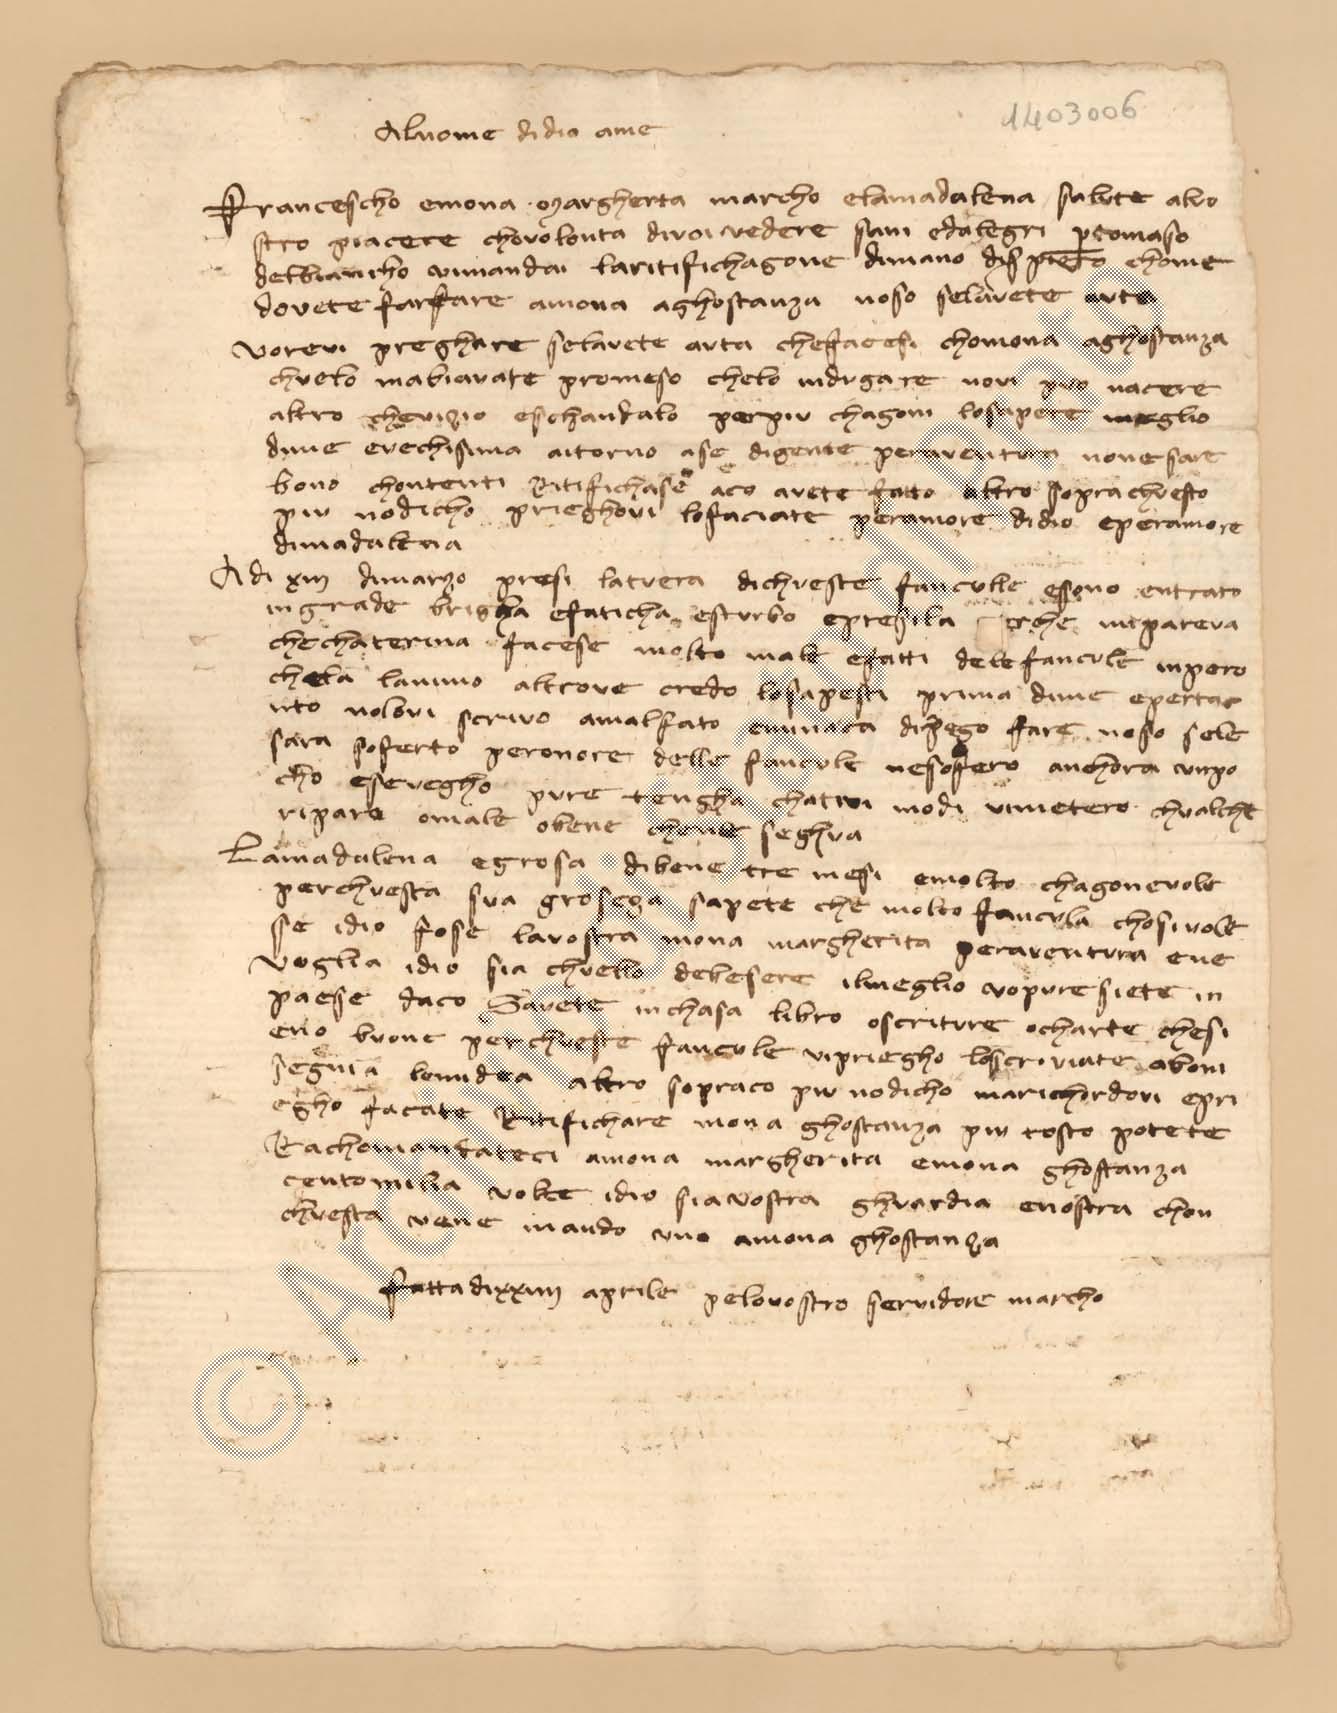 1403006
Alnome didio ame
Francescho emona margherta marcho elamadalena salute alvo
stro piacere chovolonta divoi vedere sani edalegri ptomaso
delbiancho vimandai laritifichagone dimano disr piero chome
dovete farfare amona aghostanza noso selavete avta
vorevi preghare selavete avta chefacesi chomona aghostanza
chvelo mabiavate promeso chelo indvgare novi pvo nacere
altro chevizio eschandalo perpiv chagoni losapete meglio
dime evechisima aitorno ase digente peraventvra nonesare
bono chontenti Ritifichase aco avete fatto altro soprachvesto
piv nodicho prieghovi lofaciate peramore didio eperamore
dimadalena
Adi xiiij dimarzo presi latvera dichveste fancvlle esono entrato
ingrade brigha efaticha estvrbo epresila perche mipareva
chechaterina facese molto male efatti delefancvle inpero
chela lanimo altrove credo losapesti prima dime epertac
nto nolovi scrivo amalfato eminaca dipego fare noso sele
sara soferto peronore delle fancvle nesofero anchora vnpo
cho eseveggho pvre tengha chativi modi vimetero chvalche
riparo omale obene chene seghva
Lamadalena egrosa dibene tre mesi emolto chagonevole
perchvesta sva groseza sapete che molto fancvla chosivole
se idio fose lavostra mona margherita peraventvra ene
voglia idio sia chvello debesere ilmeglio vopvre siete in
paese daco Savete inchasa libro oscritvre ocharte chesi
eno bvone perchveste fancvle vipriegho loscriviate aboni
segnia lomidea altro sopraco piv nodicho marichordovi epri
egho facate Ritifichare mona ghostanza piv tosto potete
Rachomandateci amona margherita emona ghostanza
centomilia volte idio siavostra ghvardia enostra chon
chvesta vene mando vno amona ghostanza
fatta dixxiiij aprile pelovostro servidore marcho